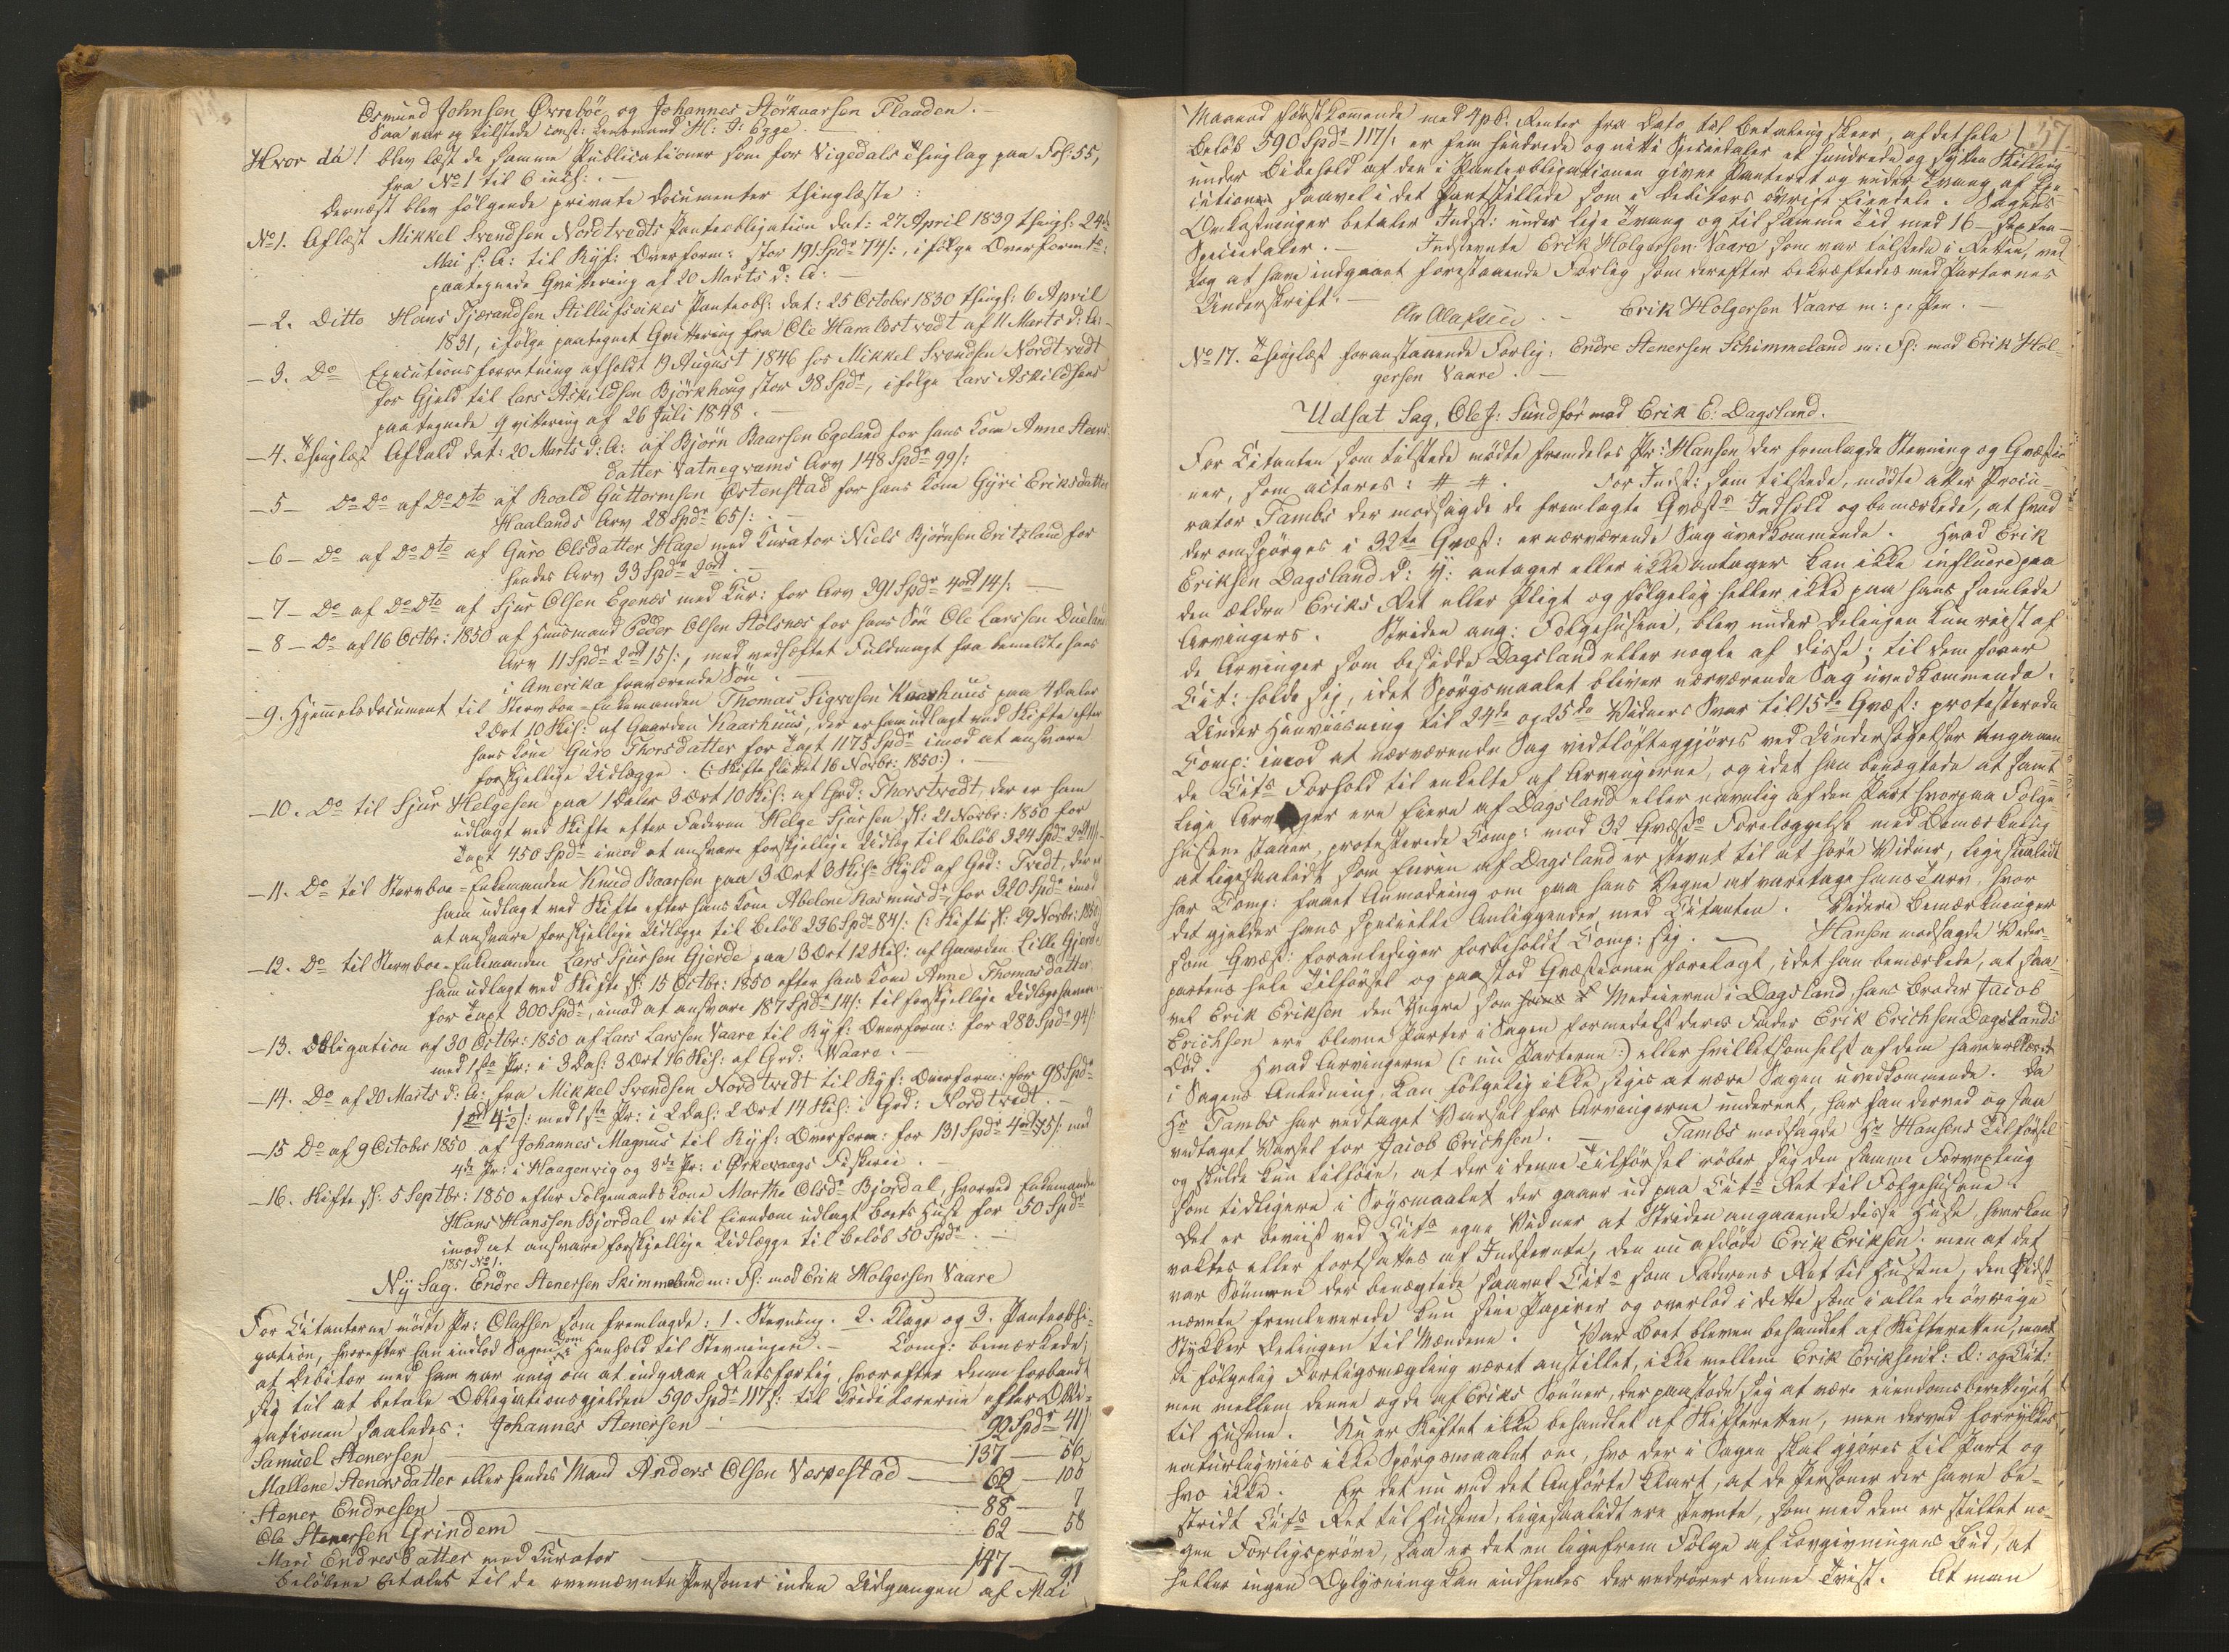 Osmund Johnsen Øvreböe og Johannes Störkaarsen Flaaden. -
Saa var og tilstede const: Lensmand H: J: Egge. -
Hvor da! blev læst de samme Publicationer som for Vigedals Thinglag paa Fol: 55,
fra No 1 til 6 incl: . -
Dernæst blev følgende private Documenter thinglæste:
No 1. Aflæst Mikkel Svendsen Nordtvedts Panteobligation dat: 27 April 1839 thingl: 24de
Mai s: A: til Ryf: Overform: stor 191 Spdr 74/:, ifølge Overform:
paategnede Qvittering af 20 Marts d: A: -
- 2. Ditto Hans Tjerandsen Stillufseikes Panteobl: dat: 25 October 1830 thingl: 6 April
1831, ifølge paategnet Qvittering fra Ole Haralostvedt af 11 Marts d: A: -
- 3. Do Executionsforretning afholdt 19 August 1846 hos Mikkel Svendsen Nordtvedt
for Gjeld til Lars Askildsen Björkhoug stor 38 Spdr, ifølge Lars Askildsens
paategnede Qvittering af 26 Juli 1848. -
- 4. Thinglæst Afkald dat: 20 Marts d: A: af Björn Baarsen Egeland for hans Kone Anne Steens-
datter Vatneqvams Arv 148 Spdr 99/:
- 5 - Do Do af Do Dto af Roald Guttormsen Østenstad for hans Kone Gyri Eriksdatter
Haalands Arv 28 Spdr 65/: . -
- 6 - Do af Do Dto af Guro Olsdatter Hage med Curator Niels Bjørnsen Eritzland for
hendes Arv 33 Spdr 2 ort. -
- 7 - Do af Do Dto af Sjur Olsen Egenæs med Cur: for Arv 391 Spdr 4 ort 14/: -
- 8 - Do af 16 Octbr: 1850 af Huusmand Peder Olsen Stölsnæs for hans Sön Ole Larssen Dueland
Arv 11 Spdr 2 ort 15/:, med vedhæftet Fuldmagt fra bemeldte hans
i Amerika fraværende Sön. -
- 9. Hjemmelsdocument til Stervboe-Enkemanden Thomas Sigvesen Kaarhuus paa 4 Daler
2 Ort 10 Skil: af Gaarden Kaarhuus, der er ham udlagt ved Skifte efter
hans Kone Guro Thorsdatter for Taxt 1175 Spdr imod at ansvare
forskjellige Udlægge. (: Skifte sluttet 16 Novbr: 1850:). -
- 10. Do til Sjur Helgesen paa 1 Daler 3 Ort 10 Skil: af Grd: Thorstvedt, der er ham
udlagt ved Skifte efter Faderen Helge Sjursen sl: 21 Novbr: 1850 for
Taxt 450 Spdr imod at ansvare forskjellige Udlæg til Beløb 324 Spdr 2 ort 11/: -
- 11. Do til Stervboe-Enkemanden Knud Baarsen paa 3 Ort 3 Skil Skyld af Grd: Tvedt, der er
ham udlagt ved Skifte efter hans Kone Abelone Rasmusdr, for 320 Spdr imod
at ansvare forskjellige Udlægge til Beløb 236 Spdr 84/: (: Skifte sl: 29 Novbr: 1850:)
- 12. Do til Stervboe-Enkemanden Lars Sjursen Gjerde paa 3 Ort 12 Skil: af Gaarden Lille Gjerde
ham udlagt ved Skifte sl: 15 Octbr: 1850 efter hans Kone Anne Thomasdatter
for Taxt 300 Spdr, imod at ansvare 187 Spdr 14/: til forskjellige Udlægshavere. -
- 13. Obligation af 30 Octbr: 1850 af Lars Larssen Vaare til Ryf: Overform: for 283 Spdr 94/:
med 1ste Pr: i 3 Dal: 3 Ort 16 Skil: af Grd: Waare. -
- 14. Do af 20 Marts d: A: fra Mikkel Svendsen Nordtvedt til Ryf: Overform: for 98 Spdr
1 ort 4½/: med 1ste Pr: i 2 Dal: 2 Ort 14 Skil: i Grd: Nordtvedt. -
- 15 Do af 9 October 1850 af Johannes Magnus til Ryf: Overform: for 131 Spdr 4 ort 75/: med
4de Pr: i Haagenvig og 3de Pr: i Ørkevaags Fiskerie. -
- 16. Skifte sl: 5 Septbr: 1850 efter Folgemands Kone Marthe Olsdr Bjordal, hvorved Enkemanden
Hans Hanssen Bjordal er til Eiendom udlagt Boets Huse for 50 Spdr
imod at ansvare forskjellige Udlægge til Beløb 50 Spdr. -
1851 No 1.
Ny Sag. Endre Stenersen Skimmeland m: Fl: mod Erik Holgersen Vaare
For Citanterne mødte Pr: Olafsen som fremlagde: 1. Stevning. 2. Klage og 3. Panteobli-
gation, hvorefter han indlod Sagen til Dom i Henhold til Stevningen. - Comp: bemærkede,
at Debitor med ham var enig om at indgaae Retsforlig, hvorefter denne forbandt
sig til at betale Obligationsgjelden 590 Spdr 117/: til Creditorerne efter Obli-
gationen saaledes: Johannes Stenersen 92 Spdr 41/:
Samuel Stenersen 137 — 56
Mallene Stenersdatter eller hendes Mand Anders Olsen Vespestad — 62 — 105
Stener Endresen 88 — 7
Ole Stenersen Grindem 62 — 58
Mari Endresdatter med Curator 147 — 91
Beløbene betales til de ovennævnte Personer inden Udgangen af Mai
57.
Maaned førstkommende med 4 pC: Renter fra Dato til Betaling skeer, af det hele
Beløb 590 Spdr 117/: er fem hundrede og nitti Speciedaler et hundrede og sytten Skilling
under Bibehold af den i Panteobligationen givne Panteret og under Tvang af Exe-
cution saavel i det Pantstillede som i Debitors övrige Eiendele. Sagens
Omkostninger betaler Indst: under lige Tvang og til samme Tid med 16 - sexten -
Speciedaler. - Indstevnte Erik Holgersen Vaare som var tilstede i Retten, ved-
tog at have indgaaet forestaaende Forlig som derefter bekræftedes med Parternes
Underskrift. -
Am Olafsen. - Erik Holgersen Vaare m: p: Pen.
No 17. Thinglæst foranstaaende Forlig: Endre Stenersen Schimmeland m: Fl: mod Erik Hol-
gersen Vaare. -
Udsat Sag, Ole J: Sundför mod Erik E: Dagsland.
For Citanten som tilstede mødte fremdeles Pr: Hansen der fremlagde Stevning og Qvæstio-
ner, som acteres: # #. For Indst: som tilstede, mødte atter Procu-
rator Tambs der modsagde de fremlagte Qvæsts Indhold og bemærkede, at hvad
der omspörges i 32te Qvæst: er nærværende Sag uvedkommende. Hvad Erik
Eriksen Dagsland d: Y: antager eller ikke antager kan ikke influere paa
den ældre Eriks Ret eller Pligt og følgelig heller ikke paa hans samlede
Arvingers. Striden ang: Folgehusene, blev under Delingen kun reist af
de Arvinger som besidde Dagsland eller nogle af disse; til dem faaer
Cit: holde sig, idet Spörgsmaalet bliver nærværende Sag uvedkommende.
Under Henviisning til 24de og 25de Vidners Svar til 15de Qvæst: protesterede
Comp: imod at nærværende Sag vidtløftiggjöres ved Undersögelser angaaen-
de Cits Forhold til enkelte af Arvingerne, og idet han benægtede at samt-
lige Arvinger ere Eiere af Dagsland eller navnlig af den Part hvorpaa Folge-
husene staaer, protesterede Comp: mod 32 Qvæsts Forelæggelse med Bemærkning
at ligesaalidt som Eieren af Dagsland er stevnt til at høre Vidner, ligesaalidt
har Comp: faaet Anmodning om paa hans Vegne at varetage hans Tarv, hvor
det gjelder hans specielle Anliggender med Citanten. Videre Bemærkninger
som Qvæst: foranlediger forbeholdt Comp: sig. - Hansen modsagde Veder-
partens hele Tilførsel og paastod Qvæstionen forelagt, idet han bemærkede, at saa-
vel Erik Eriksen den Yngre som Medeieren i Dagsland, hans Broder Jacob
Erichsen ere blevne Parter i Sagen formedelst deres Fader Erik Erichsen Dagslands
Død. Hvad Arvingerne (: nu Parterne :) eller hvilketsomhelst af dem have erklæret
i Sagens Anledning, kan følgelig ikke siges at være Sagen uvedkommende. Da
Hr Tambs har vedtaget Varsel for Arvingerne underet, har han derved og saa
vedtaget Varsel for Jacob Erichsen. - Tambs modsagde Hr Hansens Tilførsel
og skulde kun tilføie, at der i denne Tilførsel röber sig den samme Forvexling
som tidligere i Spgsmaalet der gaaer ud paa Cits Ret til Folgehusene.
Det er beviist ved Cits egne Vidner at Striden angaaende disse Huse, hverken
vaktes eller fortsattes af Indstevnte, den nu afdøde Erik Eriksen; men at det
var Sönnerne der benægtede saavel Cits som Faderens Ret til Husene, den Sidst-
nævnte fremleverede kun sine Papirer og overlod i dette som i alle de övrige
Stykker Delingen til Mændene. Var Boet bleven behandlet af Skifteretten, maat-
te følgelig Forligsmægling været anstillet, ikke mellem Erik Eriksen d: Æ: og Cit:
men mellem denne og de af Eriks Sönner, der paastode sig at være eiendomsberettiget
til Husene. Nu er Skiftet ikke behandlet af Skifteretten, men derved forrykkes
naturligviis ikke Spörgsmaalet om, hvo der i Sagen skal gjöres til Part og
hvo ikke. Er det nu ved det Anførte klart, at de Personer der have be-
stridt Cits Ret til Husene, ligesaalidt ere stevnte, som med dem er stillet no-
gen Forligspröve, saa er det en ligefrem Følge af Lovgivningens Bud, at
heller ingen Oplysning kan indhentes der vedrører denne Tvist. At man